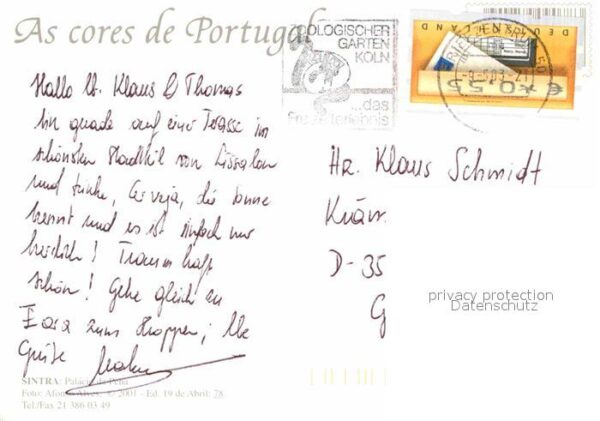 As cores de Portugal
ZOOLOGISCHER
GARTEN
KÖLN
...das
Freizeiterlebnis
DEUTSCHLAND
BRIEFZENTRUM 50
€ *0,55
Hallo lb. Klaus & Thomas
bin gerade auf einer Terasse im
schönsten Stadtteil von Lissabon
und trinke Cerveja, die Sonne
brennt und es ist einfach nur
herrlich! Traumhaft
schön! Gehe gleich zu
Zara zum Shoppen; lbe
Grüße
Hr. Klaus Schmidt
D-35
G
privacy protection
Datenschutz
SINTRA: Palácio da Pena
Foto: Afonso Alves. © 2001 - Ed. 19 de Abril: 78
Tel./Fax 21 386 03 49